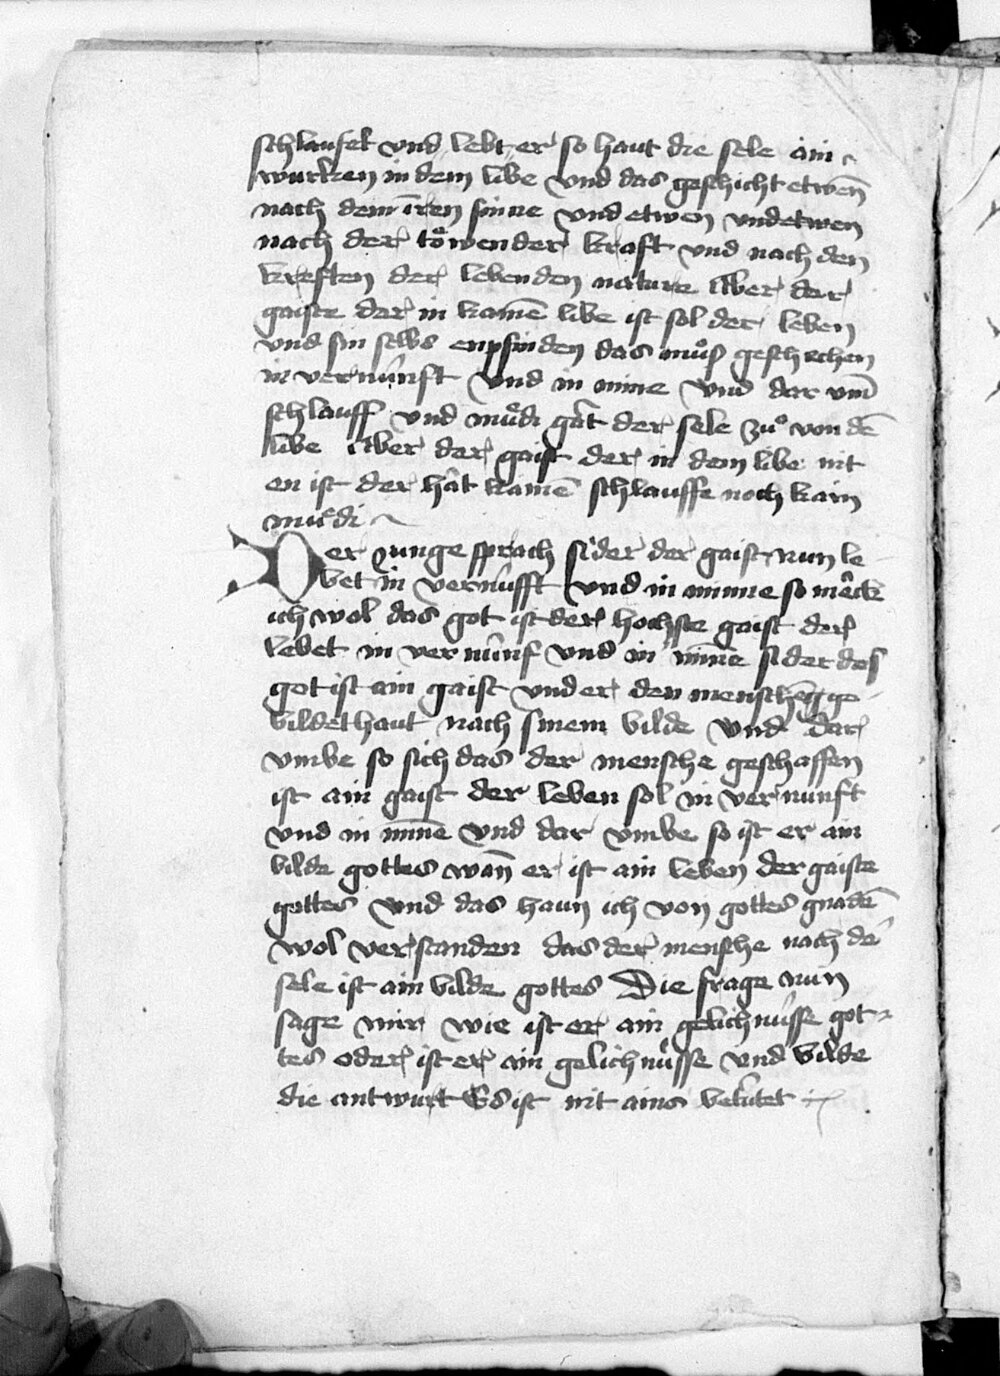 schlaufet vnd lebt er so haut die sele ain
wurken in dem libe vnd das geschicht etwen̄
nach dem īren sinne vnd etwen vndetwen
nach der toͤwender kraft vnd nach den
kreften der lebenden nature Aber der
gaiste der in kainē libe ist sol der leben
vnd sin selbs enpfinden das muͦß geschechen
in vernunft vnd in mine vnd dar vm̄
schlauff vnd muͤdi gāt der sele zuͦ von dē
libe Aber der gaist der in dem libe nit
en ist der hāt kainē schlauffe noch kain
muͤdi
Der Junge sprach sider der gaist nun le
bet in vernufft vnd in minne so mērck
ich wol das got ist der hochste gaist der
lebet in vernunf vnd in mīne sider des
got ist ain gaist vnd er den menschen ge
bildet haut nach sinem bilde vnd dar
vmbe so sich das der mensche geschaffen
ist ain gaist der leben sol in vernunft
vnd in mīne vnd dar vmbe so ist er ain
bilde gottes wan̄ er ist ain leben der gaiste
gottes vnd das haun ich von gottes gnadē
wol verstanden das der mensche nach dē
sele ist ain bilde gottes Die frage nun
sage mir wie ist er ain gelichnüsse got
tes oder ist er ain gelichnüsse vnd bilde
die antwurt Es ist nit ains betutet